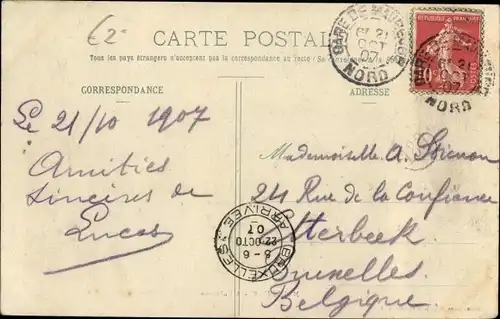 62-
CARTE POSTALE
Tous les pays étrangers n'acceptent pas la correspondance au recto
CORRESPONDANCE
ADRESSE
GARE DE
21
OCT
07
NORD
RÉPUBLIQUE FRANÇAISE
10
Le 21/10 1907
Amitiés
sincères de
Lucas
Mademoiselle A.
24 Rue de la Confiance
Etterbeek
Bruxelles
Belgique
BRUXELLES
ARRIVEE
5-6
22 OCTO
07